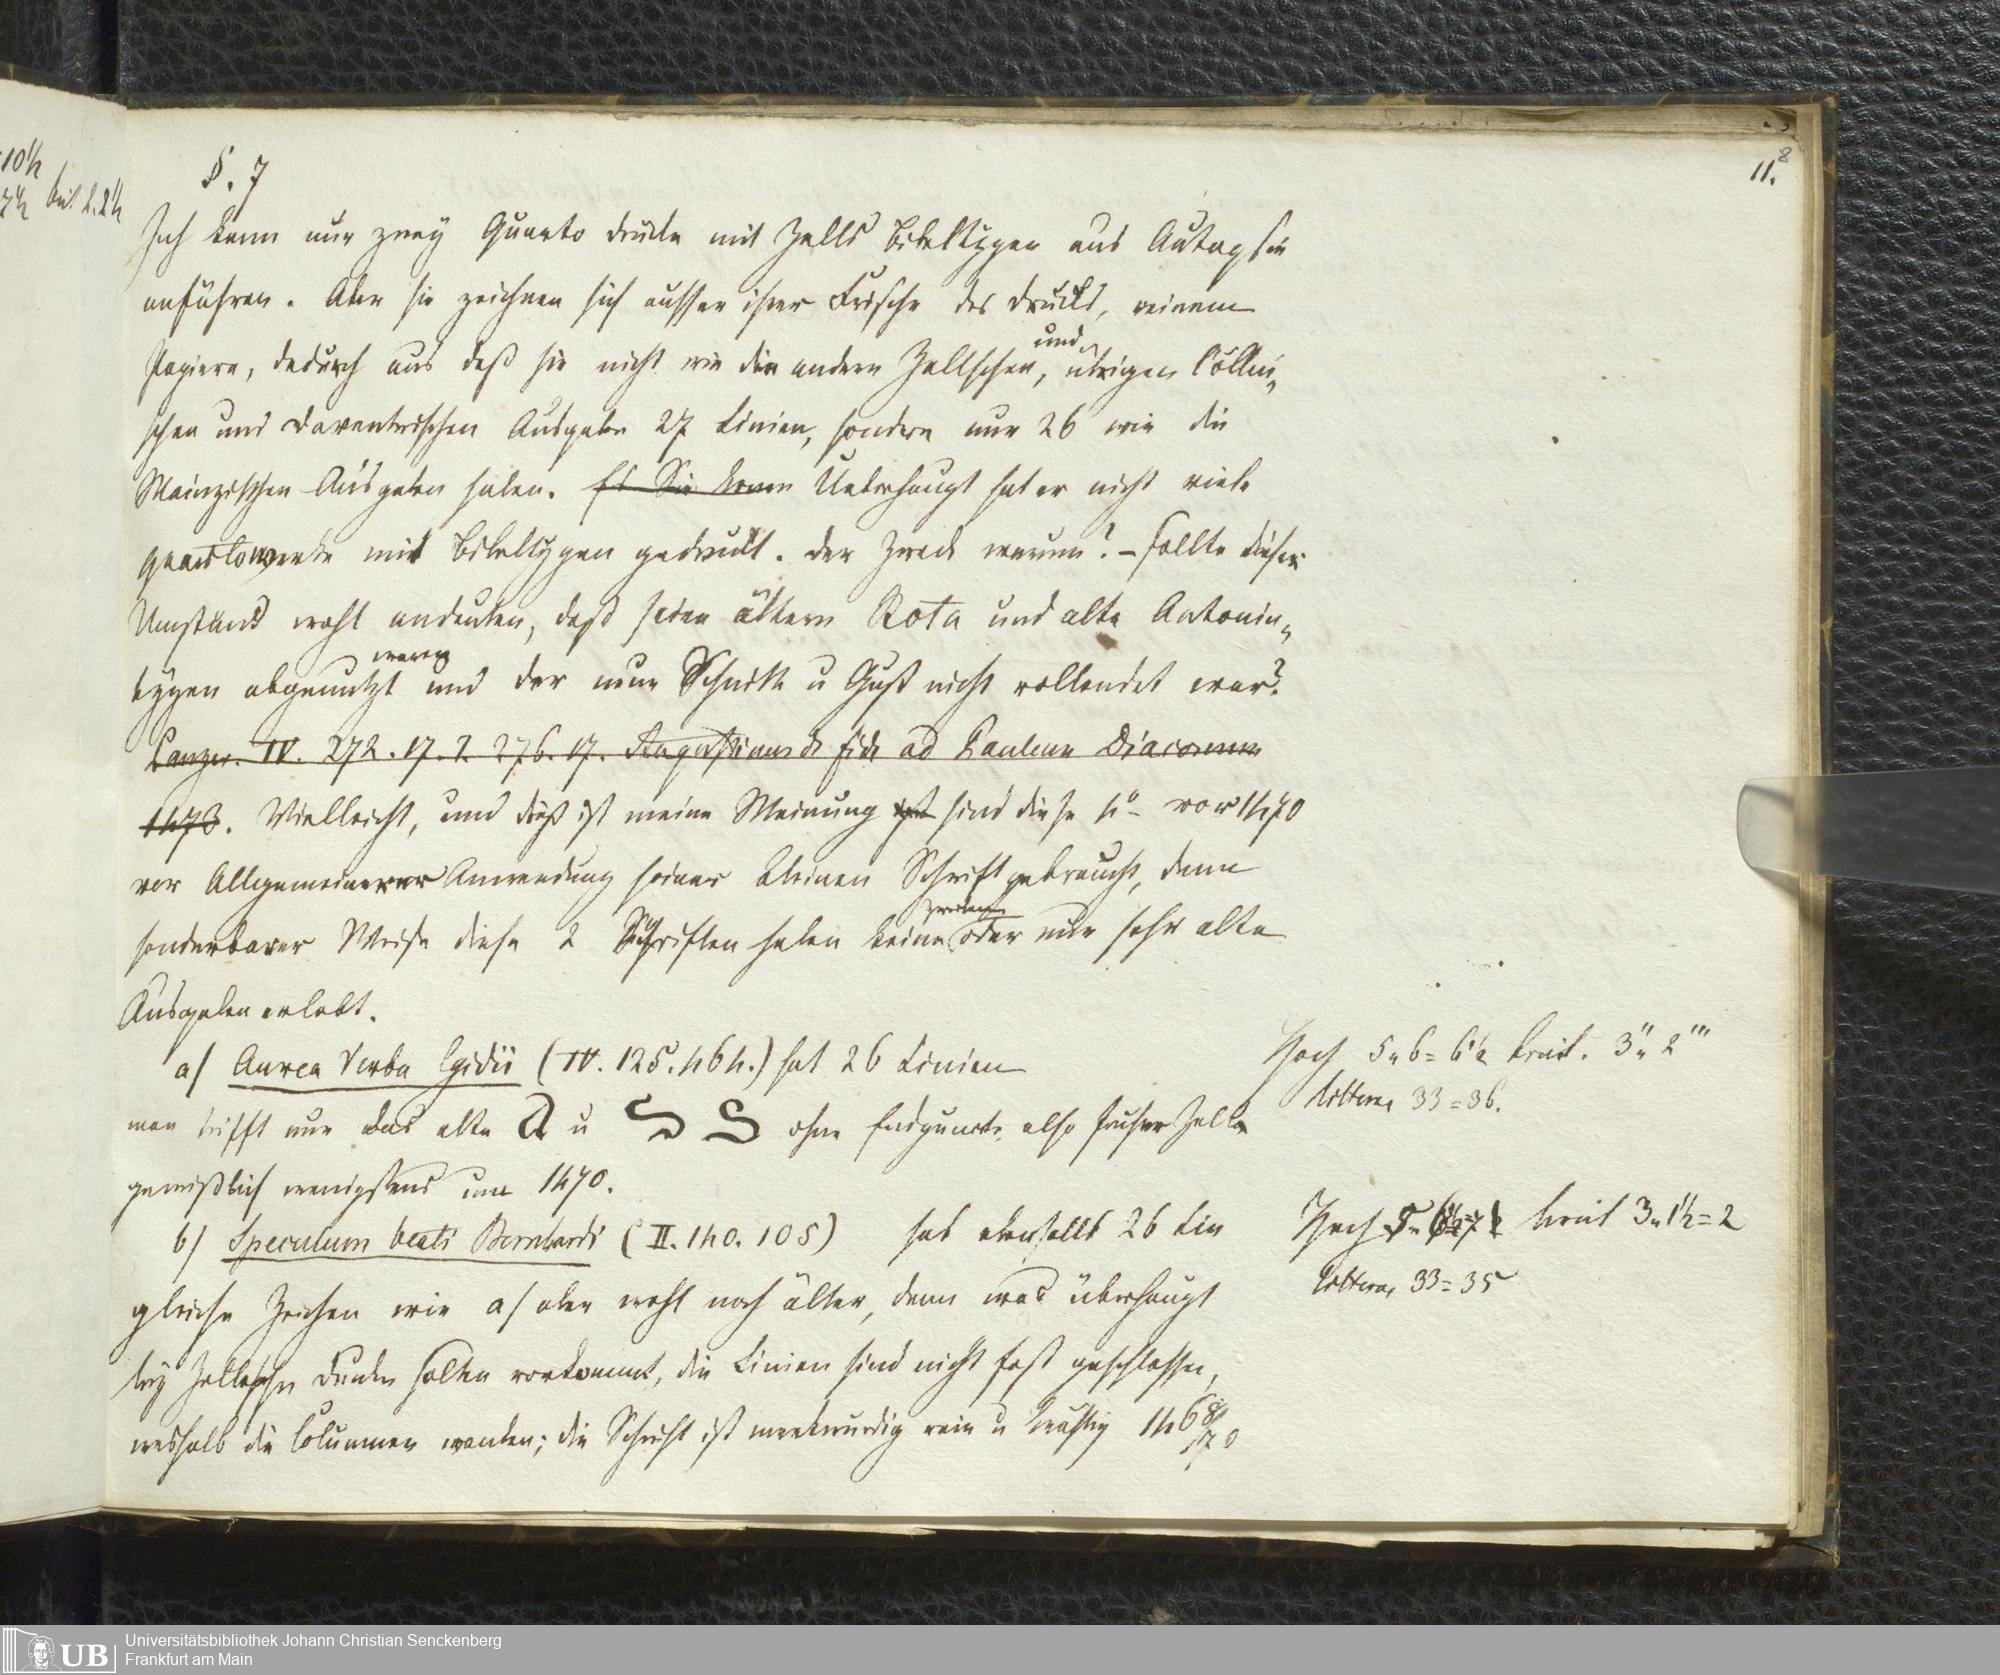 10½
7½ breit 2. 2½
8
11.
§. 7
Ich kann nur zwey Quarto drucke mit Zells Bibeltypen aus Autopsie
anführen. Aber sie zeichnen sich ausser ihrer Frische des Drucks, reinem
Papiere, dadurch aus daß sie nicht wie die andern Zellschen, und übrigen Cöllni„
schen und Daventrischen Ausgaben 27 Linien, sondern nur 26 wie die
Mainzischen Ausgaben haben. Es Sie kamen Ueberhaupt hat er nicht viele
Quartowerke mit Bibeltypen gedruckt. Der Zweck warum? – sollte dieser
Umstand wohl andeuten, daß seine ältern Rota und alte Antonin„
typen abgenutzt waren und der neue Schnitt u Guß nicht vollendet war?
Panzer. IV. 272. 17. 2. 276. 17. Augustinus de fide ad Paulum Diaconum
1473. Vielleicht, und dieß ist meine Meinung ist sind diese 4º vor 1470
vor Allgemeinerer Anwendung seiner kleinen Schrift gebraucht, denn
sonderbarer Weise diese 2 Schriften haben keine oder nur sehr alte
Ausgaben erlebt.
a/ Aurea Verba Egidii (IV. 125. 464.) hat 26 Linien
Hoch 5„6=6½ breit. 3„2'''
Littera, 33=36.
man trifft nur das alte Q u S S ohne Endpuncte, also früher Zell
gewißlich wenigstens um 1470.
b/ Speculum beati Bernhardi (II. 140. 105) hat ebenfalls 26 Lin
Hoch 5„ 6½=7½ breit 3„1½=2
Littera, 33=35
gleiche Zeichen wie a/ aber wohl noch älter, denn was überhaupt
bey Zellische Drucken selten vorkommt, die Linien sind nicht fest geschlossen,
weshalb die Columnen wanken; die Schrift ist merkwürdig rein u kräftig 1468/70
Universitätsbibliothek Johann Christian Senckenberg
UB
Frankfurt am Main